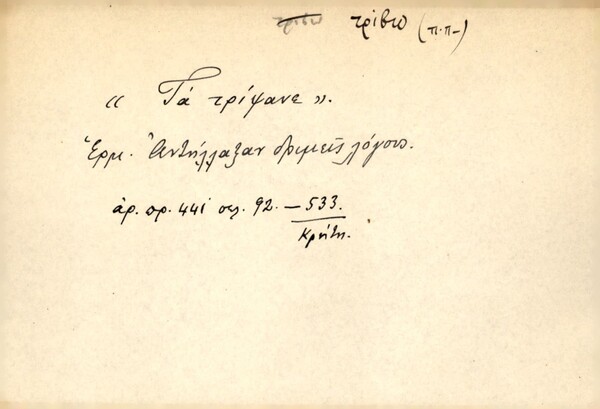 τρίβω τρίβω (π.π-)
« Τά τρίψανε ».
Ἑρμ. Ἀντήλλαξαν δριμεῖς λόγους.
ἀρ. πρ. 441 σελ. 92. – 533.
Κρήτη.